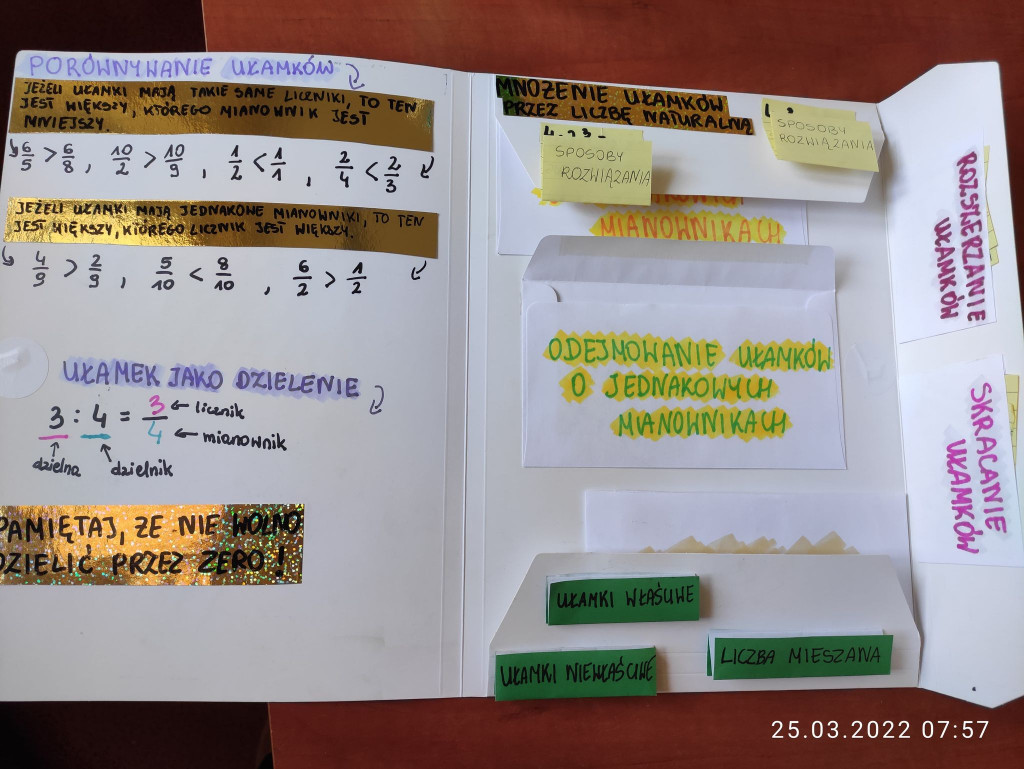 PORÓWNYWANIE UŁAMKÓW
JEŻELI UŁAMKI MAJĄ TAKIE SAME LICZNIKI, TO TEN
JEST WIĘKSZY, KTÓREGO MIANOWNIK JEST
MNIEJSZY.
6/5 > 6/8, 10/2 > 10/9, 1/2 < 1/1, 2/4 < 2/3
JEŻELI UŁAMKI MAJĄ JEDNAKOWE MIANOWNIKI, TO TEN
JEST WIĘKSZY, KTÓREGO LICZNIK JEST WIĘKSZY.
4/9 > 2/9, 5/10 < 8/10, 6/2 > 1/2
UŁAMEK JAKO DZIELENIE
3 : 4 = 3/4
licznik
mianownik
dzielna
dzielnik
PAMIĘTAJ, ŻE NIE WOLNO
DZIELIĆ PRZEZ ZERO!
MNOŻENIE UŁAMKÓW
PRZEZ LICZBĘ NATURALNĄ
SPOSOBY
ROZWIĄZANIA
SPOSOBY
ROZWIĄZANIA
MIANOWNIKACH
ODEJMOWANIE UŁAMKÓW
O JEDNAKOWYCH
MIANOWNIKACH
UŁAMKI WŁAŚCIWE
UŁAMKI NIEWŁAŚCIWE
LICZBA MIESZANA
ROZSZERZANIE
UŁAMKÓW
SKRACANIE
UŁAMKÓW
25.03.2022 07:57